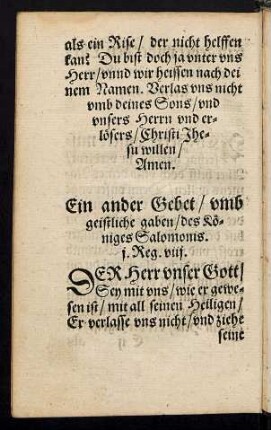 als ein Rise/ der nicht helffen
kan? Du bist doch ja vnter vns
Herr/ vnnd wir heissen nach dei
nem Namen. Verlas vns nicht
vmb deines Sons/ vnd
vnsers Herrn vnd er-
lösers/ Christi Jhe-
su willen/
Amen.
Ein ander Gebet/ vmb
geistliche gaben/ des Kö-
niges Salomonis.
j. Reg. viij.
DER Herr vnser Gott/
Sey mit vns/ wie er gewe-
sen ist/ mit all seinen Heiligen/
Er verlasse vns nicht/ vnd ziehe
seine